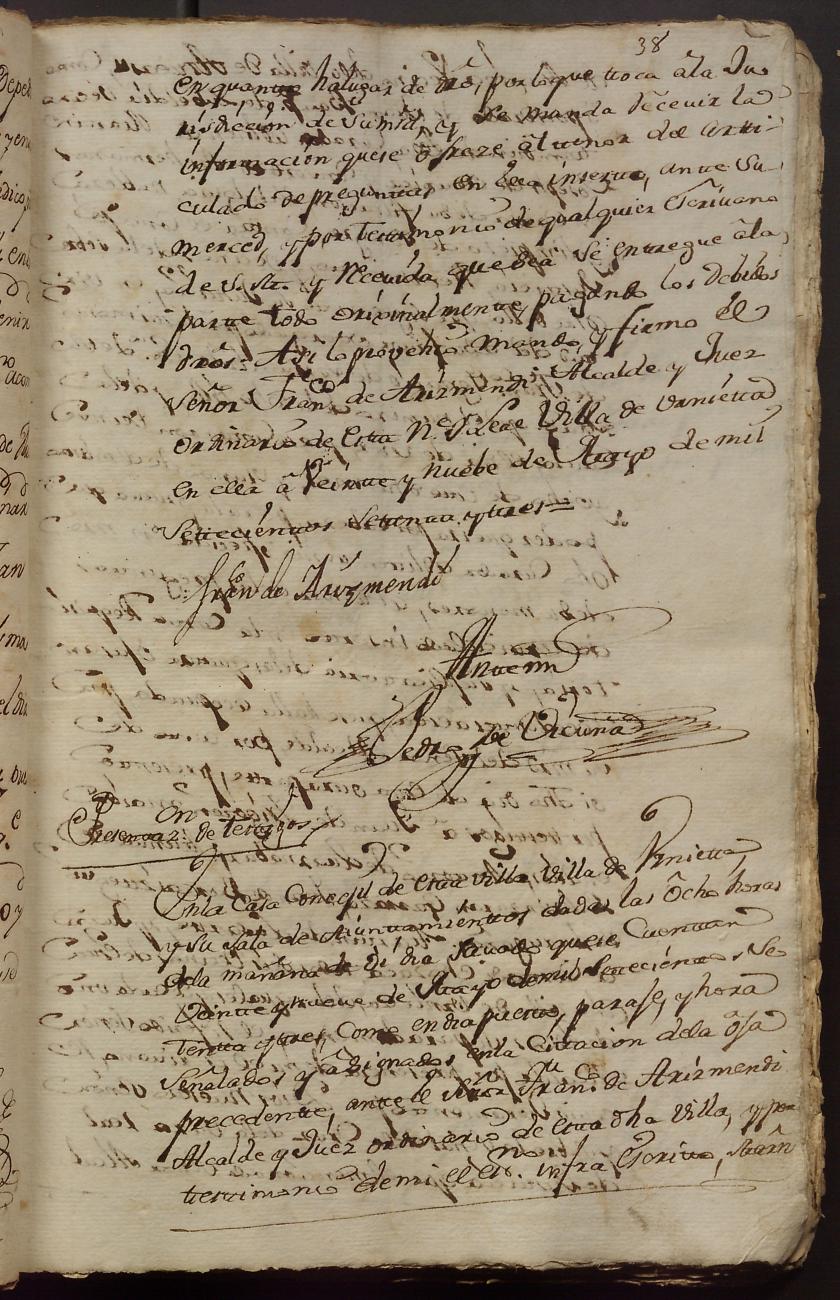 38
en quanto ha lugar de dro, por lo que toca a la Ju-
risdiccion de Su mrd, y se manda receuir la
informacion que se ofreze al tenor del arti-
culado de preguntas en ella inserto, ante Su
merced, y por testimonio de qualquier Escriuano
de S. M. y Receuida que sea se entregue a la
parte todo original mente, pagando los debidos
dros: Asi lo proveyo mando, y firmo el
Señor Franco de Arizmendi Alcalde y Juez
ordinario de esta N. y Leal Villa de Vrnieta
en ella a Veinte y nuebe de Mayo de mil
Settecientos Setenta y tres=
Franco de Arizmendi
Antemi
Pedro de Vicuña
En
Presentazn. de testigos
En la Casa Concegil de esta Villa Villa de Vrnieta,
y su Sala de Aiuntamientos dadas las ocho horas
de la mañana de el dia Sauado que se Cuentan
Veinte y nueve de Mayo de mil Settecientos Se
tenta y tres, Como en dia puesto, paraje, y hora
Señalados y asignados en la Citacion de la oja
precedente, ante el Señor Franco de Arizmendi
Alcalde y Juez ordinario de esta dha Villa, y por
testimonio de mi el Esno. infra Escrito,